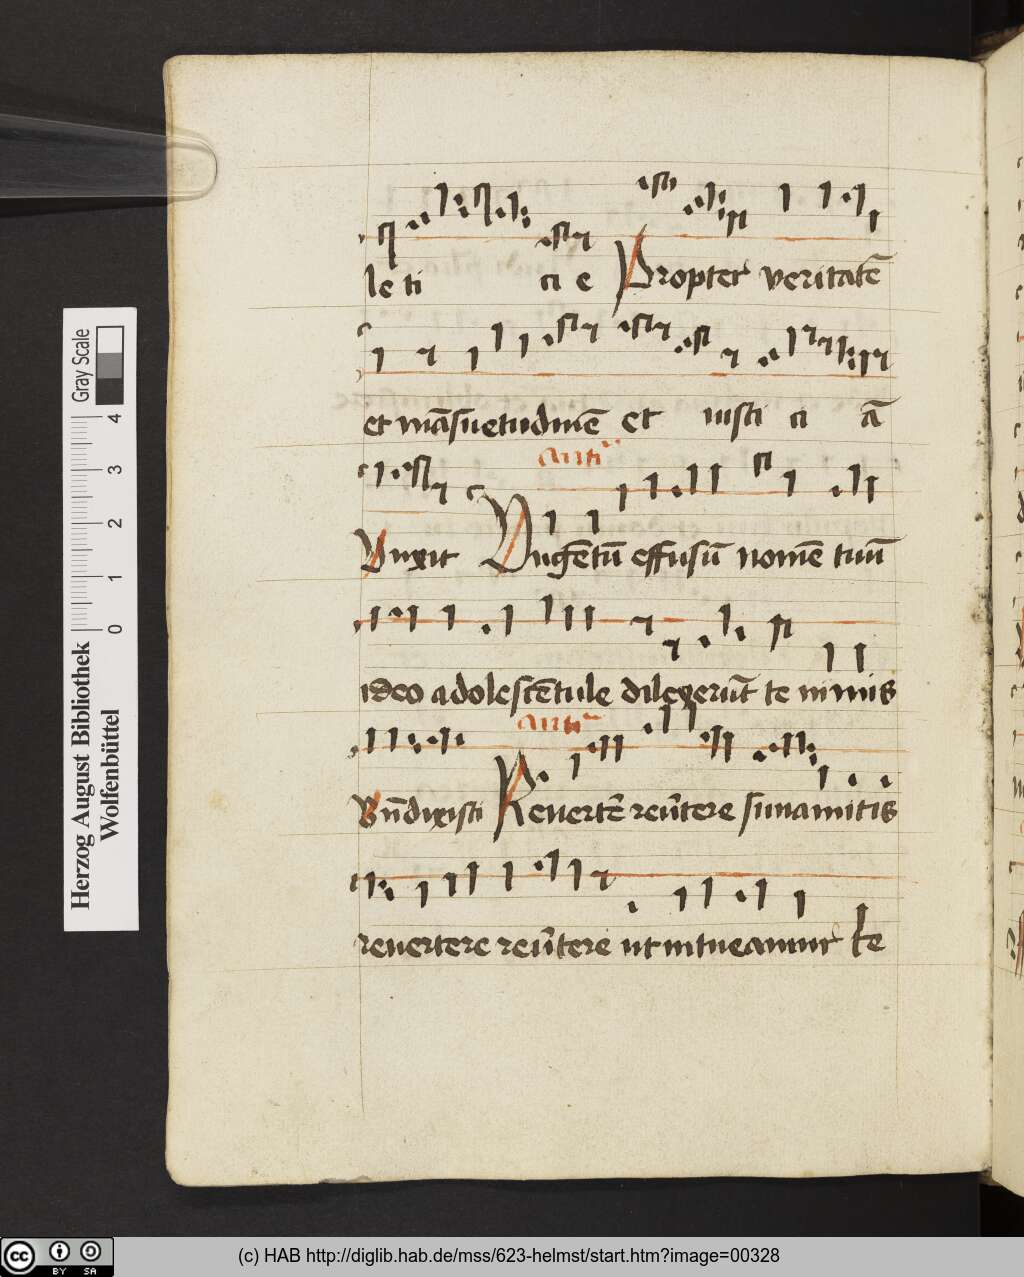 le ti ci e Propter veritatē
et māsuetudinē et iusti ci ā
Anti
Vnxit Vngētū effusū nomē tuū
ideo adolescētule dilexerūt te nimis
anti
Bn̄dixisti Reuertē reūtere sunamitis
reuertere reūtere ut intueamur te
Gray Scale
4
3
2
1
0
Herzog August Bibliothek
Wolfenbüttel
cc BY SA
(c) HAB http://diglib.hab.de/mss/623-helmst/start.htm?image=00328